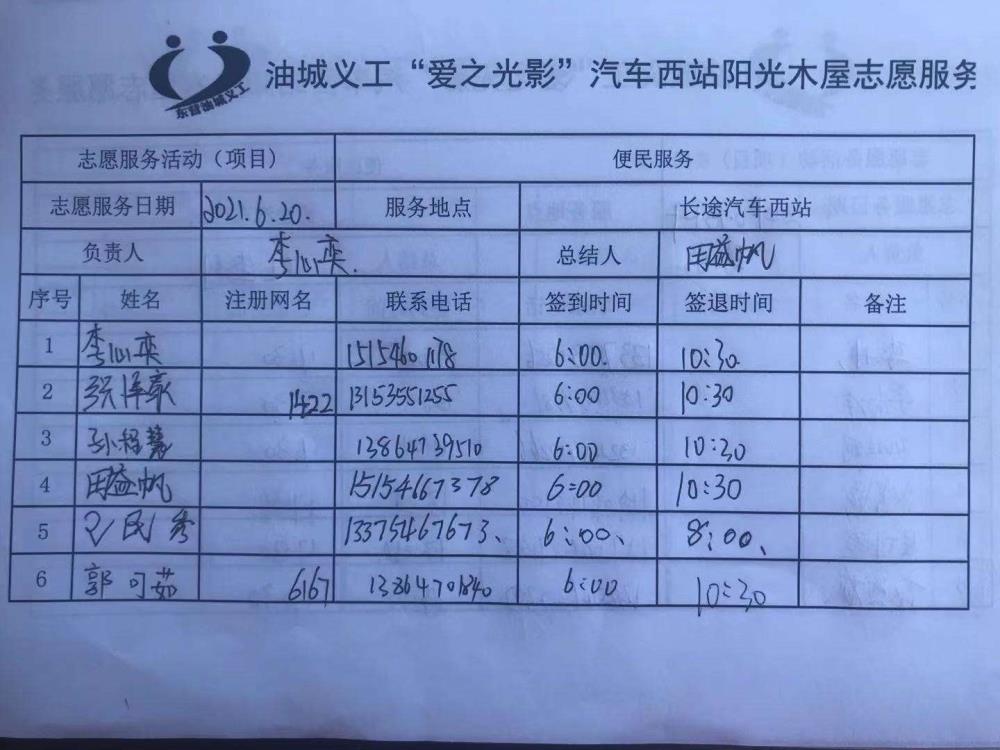 东营油城义工
油城义工“爱之光影”汽车西站阳光木屋志愿服务
志愿服务活动（项目） 便民服务
志愿服务日期 2021.6.20. 服务地点 长途汽车西站
负责人 李心奕. 总结人 田益帆
序号 姓名 注册网名 联系电话 签到时间 签退时间 备注
1 李心奕 15154601178 6:00. 10:30
2 张泽豪 1422 13153551255 6:00 10:30
3 孙裕慧 13864739510 6:00 10:30
4 田益帆 15154667378 6:00 10:30
5 民秀 13375467673、 6:00、 8:00、
6 郭可茹 6167 13864701840 6:00 10:30